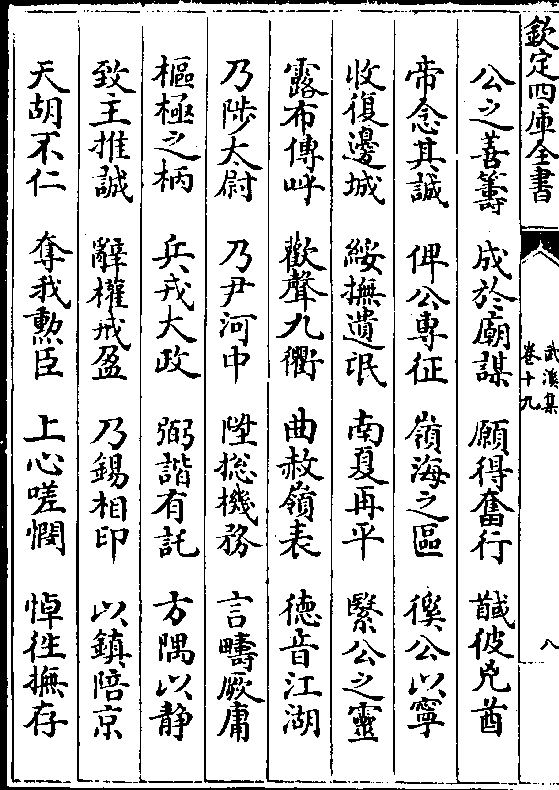 欽定四庫全書
武溪集
卷十九
八
公之善籌 成於廟謀 願得奮行 馘彼兇酋
帝念其誠 俾公專征 嶺海之區 徯公以寧
收復邊城 綏撫遺氓 南夏再平 繄公之靈
露布傳呼 歡聲九衢 曲赦嶺表 德音江湖
乃陟太尉 乃尹河中 陞揔機務 言疇厥庸
樞極之柄 兵戎大政 弼諧有託 方隅以静
致王推誠 辭權戒盈 乃錫相印 以鎮陪京
天胡不仁 奪我勲臣 上心嗟憫 悼徃撫存